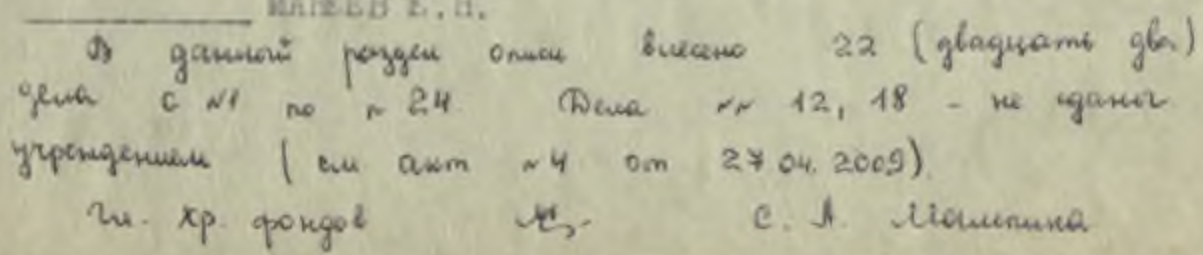 В данный раздел описи внесено 22 (двадцать два)
дела с №1 по № 24. Дела №№ 12, 18 - не сданы
учреждением (см акт №4 от 27.04.2009).
Гл. хр. фондов С. А.